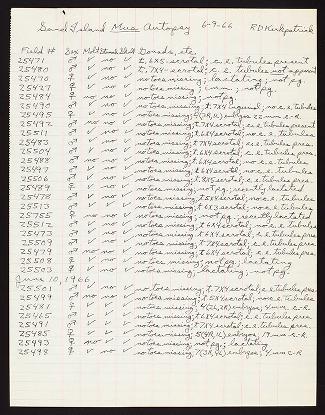 Sand Island Mus Autopsy 6-9-66 RD Kirkpatrick
Field # Sex Molt Donads, etc.
25471 ♂ ✓ no ✓ t. 6X5 scrotal; c.e. tubules present
25480 ♂ ✓ no ✓ t. 7X4 scrotal; c.e. tubules not apparent
25470 ♀ ✓ no ✓ no toes missing; lactating; not pg.
25427 ♀ ✓ no ✓ no toes missing; not pg.
25484 no ✓ no toes missing; not pg.
25490 ✓ no ✓ no toes missing; t. no c.e. tubules
25495 ♀ ✓ ✓ no toes missing; embryos 22 mm c-R
no toes missing; scrotal; c.e. tubules pres.
25511 ♂ ✓ no ✓ no toes missing; t. 6X4 scrotal; no c.e. tubules
25483 ♂ ✓ no ✓ no toes missing; t. 7X4 scrotal; c.e. tubules pres.
25504 ♂ ✓ no ✓ no toes missing; t. 6X4 scrotal; c.e. tubules pres.
25488 ♂ no no ✓ no toes missing; t. 6X4 scrotal; no c.e. tubules
25497 ♂ ✓ no ✓ no toes missing; t. 6X4 scrotal; no c.e. tubules
25506 ✓ no ✓ no toes missing; scrotal; c.e. tubules pres.
25489 ♀ ✓ no ✓ no toes missing; not pg; recently lactated
25478 ♂ ✓ no ✓ no toes missing; t. 5X4 scrotal; no c.e. tubules
25513 ♂ ✓ no ✓ no toes missing; t. 6X3 scrotal; no c.e. tubules
25755 ♀ no no ✓ no toes missing; not pg.; recently lactated
25512 ♂ ✓ no ✓ no toes missing; t. 6X4 scrotal; no c.e. tubules
25473 ♂ ✓ no ✓ no toes missing; t. 6X4 scrotal; c.e. tubules pres.
25509 ♂ ✓ no ✓ no toes missing; t. 7X4 scrotal; c.e. tubules pres.
25479 ♂ no no ✓ no toes missing; t. 6X4 scrotal; c.e. tubules pres.
25508 ♀ ✓ no ✓ no toes missing; not pg; lactating
25503 ♀ ✓ no ✓ no toes missing; lactating; not pg.
June 10, 1966
25501 ♂ ✓ no ✓ no toes missing; t. 7X4 scrotal; c.e. tubules pres.
25499 ♂ no no ✓ no toes missing; t. 5X4 scrotal; no c.e. tubules
25487 ♀ ✓ no ✓ no toes missing; embryos; 4 mm c-R
25465 ♂ ✓ no ✓ no toes missing; t. 6X4 scrotal; c.e. tubules pres.
25491 ♂ ✓ no ✓ no toes missing; t. 7X4 scrotal; c.e. tubules pres.
25485 ♀ ✓ no ✓ no toes missing; embryos; 19 mm c-R
25493 ♀ no no ✓ no toes missing; not pg.; lactating
25498 ♀ ✓ no ✓ no toes missing; embryos; 4 mm c-R